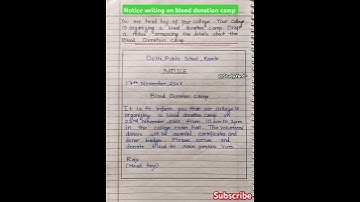 Notice writing on blood donation camp
You are head boy of your college. Your college
is organizing a blood donation camp. Draft
a notice announcing the details about the
Blood Donation camp.
Delhi Public School, Kerala
NOTICE
17th November, 20
Blood Donation camp
It is to inform you that our college is
organizing a blood donation camp on
23rd November, from 10 am to 2 pm
in the college main hall. The volunteers
donors will be awarded certificates and
donor badges. Please arrive and
donate blood to save precious lives.
Raja
(Head boy)
Subscribe